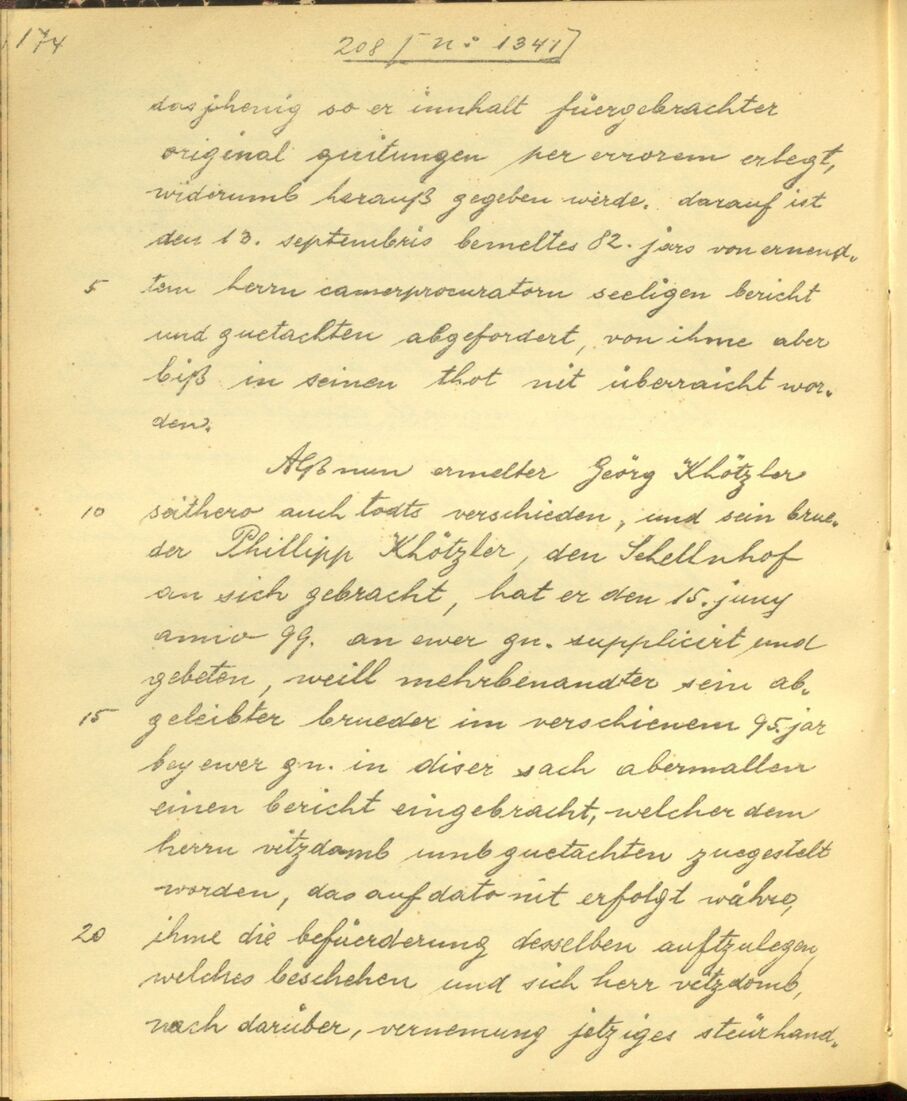 174
208 [N: 1341]
das jhenig so er innhalt füergebrachter
original quitungen per errorem erlegt,
widerumb herauß gegeben werde. darauf ist
den 13. septembris bemeltes 82. jars von ernend-
5 tem herrn camerprocuratorn seeligen bericht
und guetachten abgefordert, von ihme aber
biß in seinen thot nit überraicht wor-
den.
Alß nun ermelter Geörg Khötzler
10 seithero auch todts verschieden, und sein brue-
der Phillipp Khötzler, den Schellnhof
an sich gebracht, hat er den 15. juny
anno 99. an ewer gn. supplicirt und
gebeten, weill mehrbenandter sein ab-
15 geleibter brueder im verschienem 95. jar
bey ewer gn. in diser sach abermallen
einen bericht eingebracht, welcher dem
herrn vitzdomb umb guetachten zuegestelt
worden, das auf dato nit erfolgt währe,
20 ihme die befüerderung desselben auftzulegen,
welches beschehen und sich herr vitzdomb,
nach darüber, vernemung jetziges steürhand-